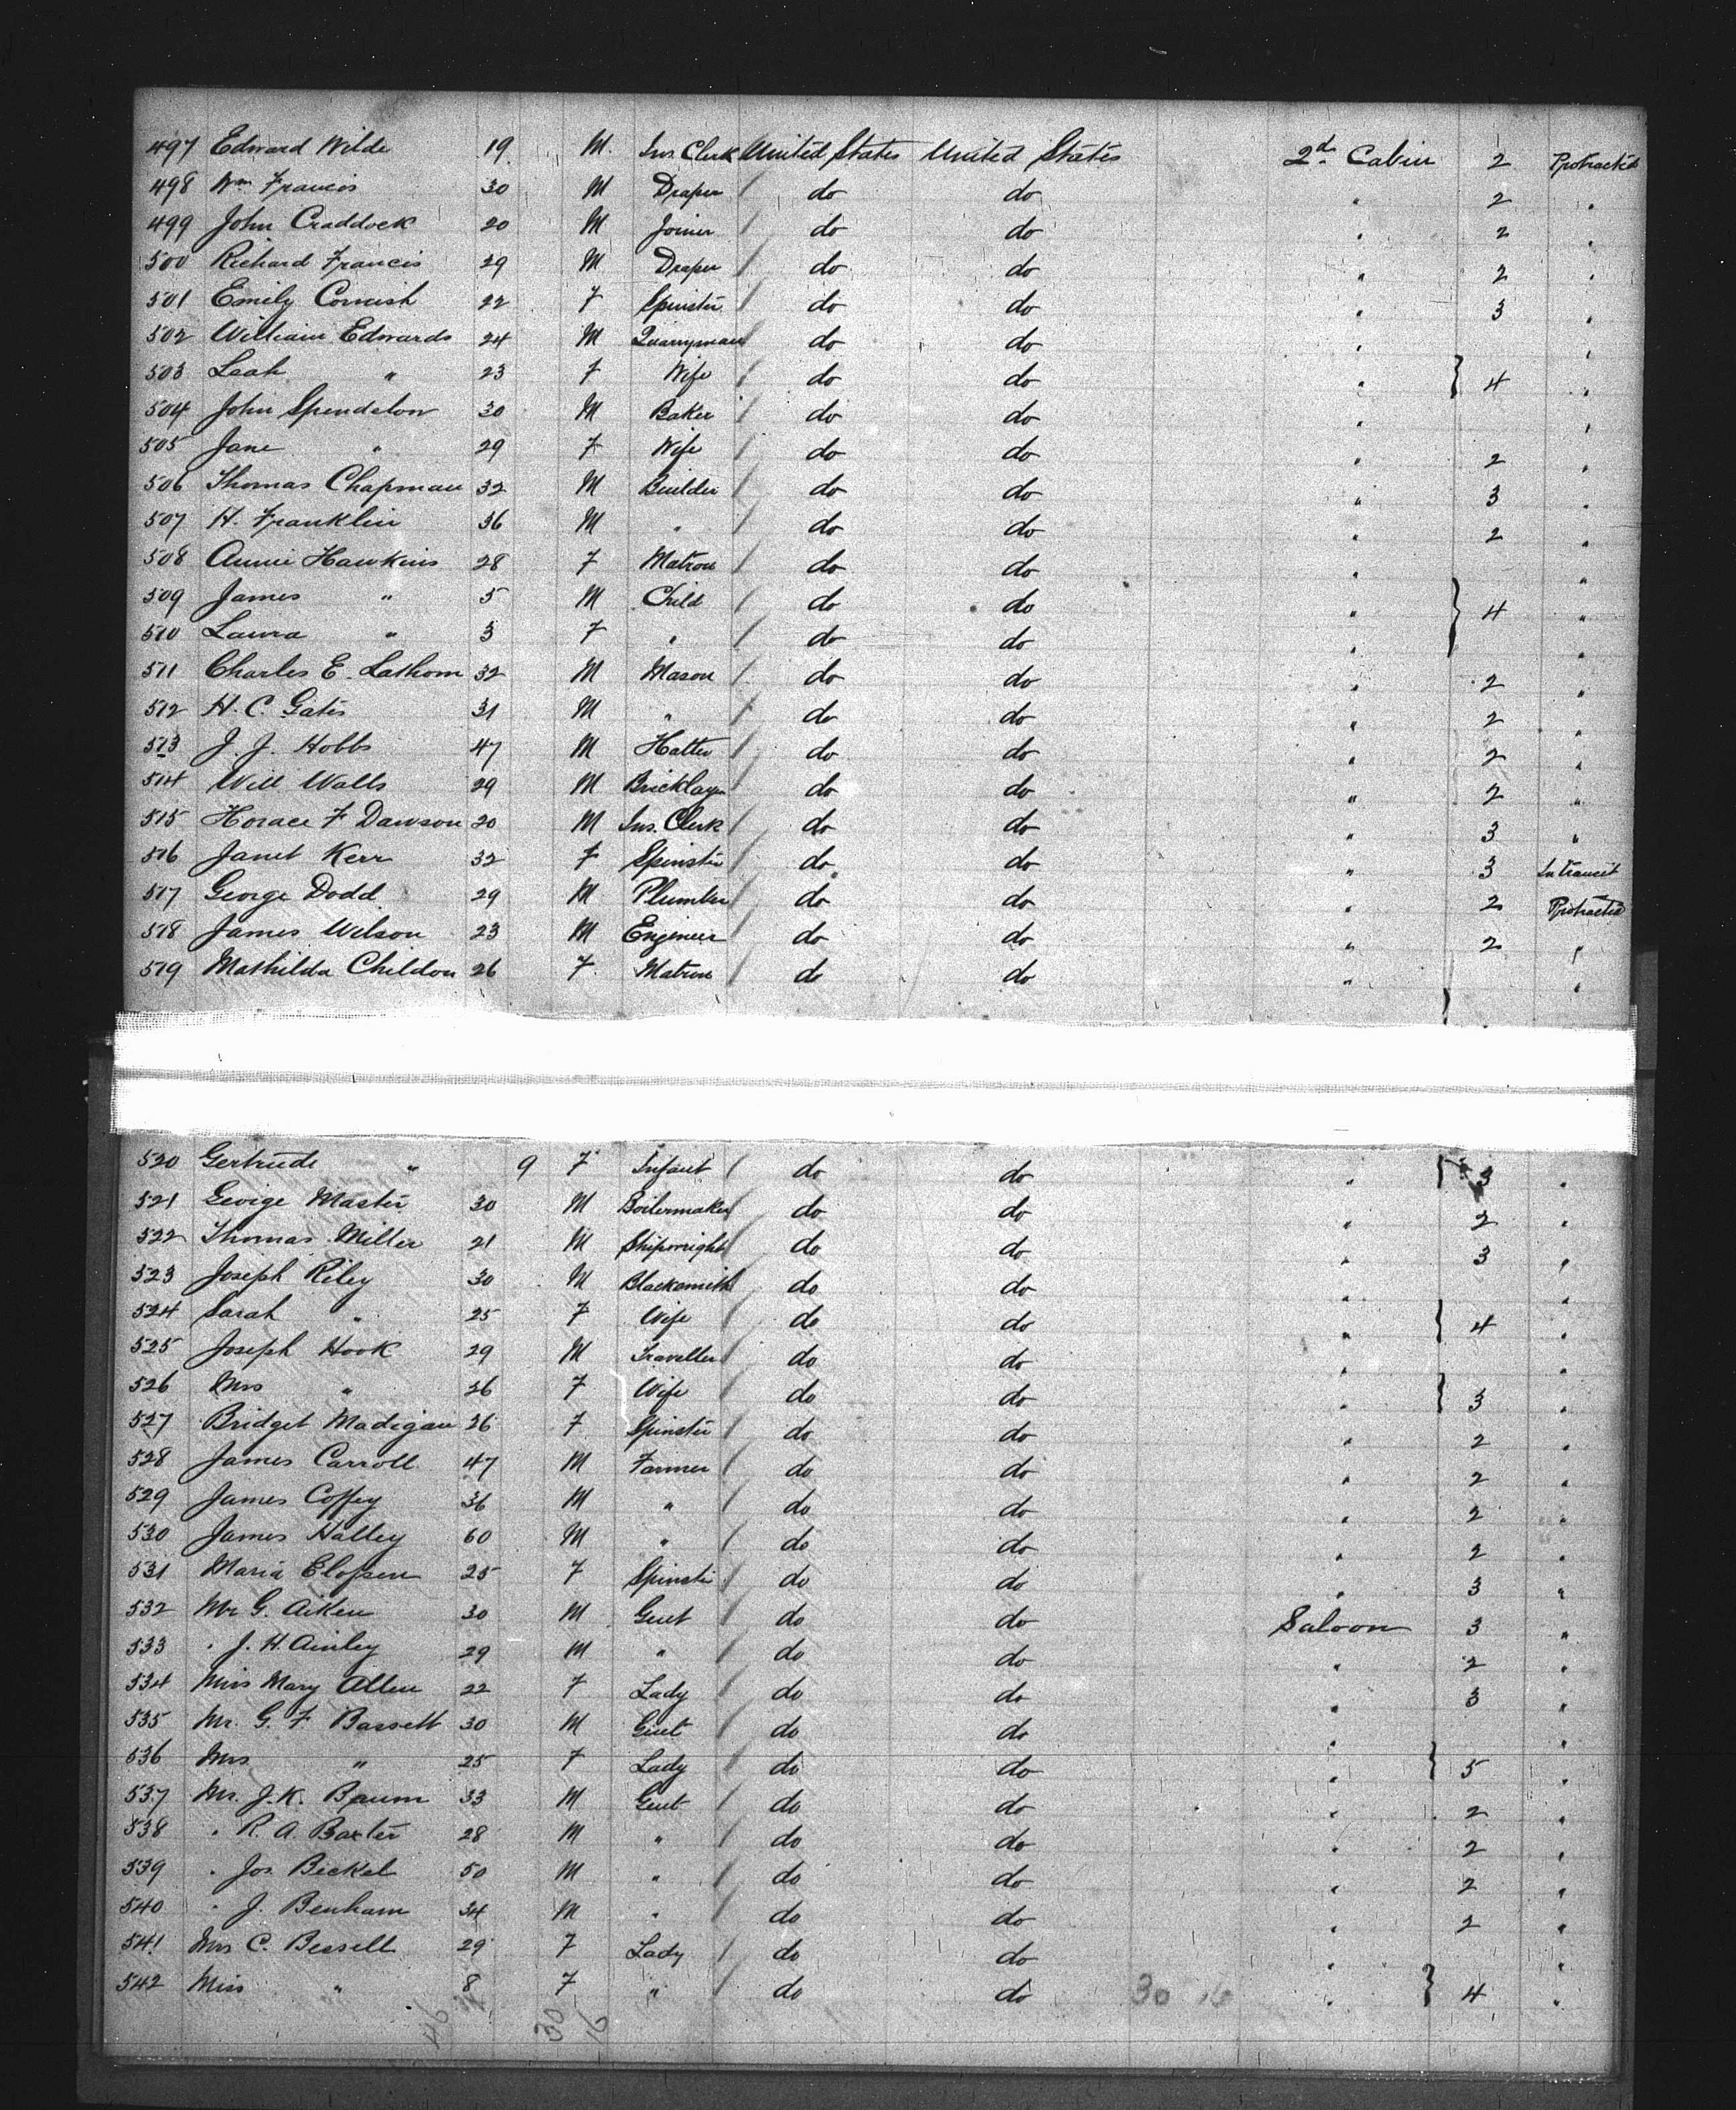 497 Edward Wilde 19 M. Ins. Clerk / United States United States 2d Cabin 2 Protracted
498 Wm Francis 30 M Draper / do do " 2 "
499 John Craddock 20 M Joiner / do do " 2 "
500 Richard Francis 29 M Draper / do do " 2 "
501 Emily Cornish 22 F Spinster / do do " 3 "
502 William Edwards 24 M Quarryman / do do " "
503 Leah " 23 F Wife / do do " } 4 "
504 John Spendelow 30 M Baker / do do " "
505 Jane " 29 F Wife / do do " 2 "
506 Thomas Chapman 32 M Builder / do do " 3 "
507 H. Franklin 36 M " / do do " 2 "
508 Annie Hawkins 28 F Matron / do do " "
509 James " 5 M Child / do do " } 4 "
510 Laura " 3 F " / do do " "
511 Charles E. Lathom 32 M Mason / do do " 2 "
512 H. C. Gates 31 M " / do do " 2 "
513 J. J. Hobbs 47 M Hatter / do do " 2 "
514 Will Walls 29 M Bricklayer / do do " 2 "
515 Horace F Dawson 20 M Ins. Clerk / do do " 3 "
516 Janet Kerr 32 F Spinster / do do " 3 In transit
517 George Dodd 29 M Plumber / do do " 2 Protracted
518 James Wilson 23 M Engineer / do do " 2 "
519 Mathilda Childon 26 F. Matron / do do " "
520 Gertrude " 9 F Infant / do do " } 3 "
521 George Master 30 M Boilermaker / do do " 2 "
522 Thomas Miller 21 M Shipwright / do do " 3 "
523 Joseph Riley 30 M Blacksmith / do do " "
524 Sarah " 25 F Wife / do do " } 4 "
525 Joseph Hook 29 M Traveller / do do " "
526 Mrs " 26 F Wife / do do " } 3 "
527 Bridget Madigan 26 F Spinster / do do " 2 "
528 James Carroll 47 M Farmer / do do " 2 "
529 James Coffey 36 M " / do do " 2 "
530 James Halley 60 M " / do do " 2 "
531 Maria Elofsen 25 F Spinster / do do " 3 "
532 Mr G. Aiken 30 M Gent / do do Saloon 3 "
533 " J. H. Ainley 29 M " / do do " 2 "
534 Miss Mary Allen 22 F Lady / do do " 3 "
535 Mr. G. F Bassett 30 M Gent / do do " "
536 Mrs " 25 F Lady / do do " } 5 "
537 Mr. J. K. Baum 33 M Gent / do do " 2 "
538 " R. A. Baxter 28 M " / do do " 2 "
539 " Jos. Bickel 50 M " / do do " 2 "
540 " J. Benham 34 M " / do do " 2 "
541 Mrs C. Bissell 29 F Lady / do do " "
542 Miss " 8 F " / do do 30 16 " } 4 "
46 30 16